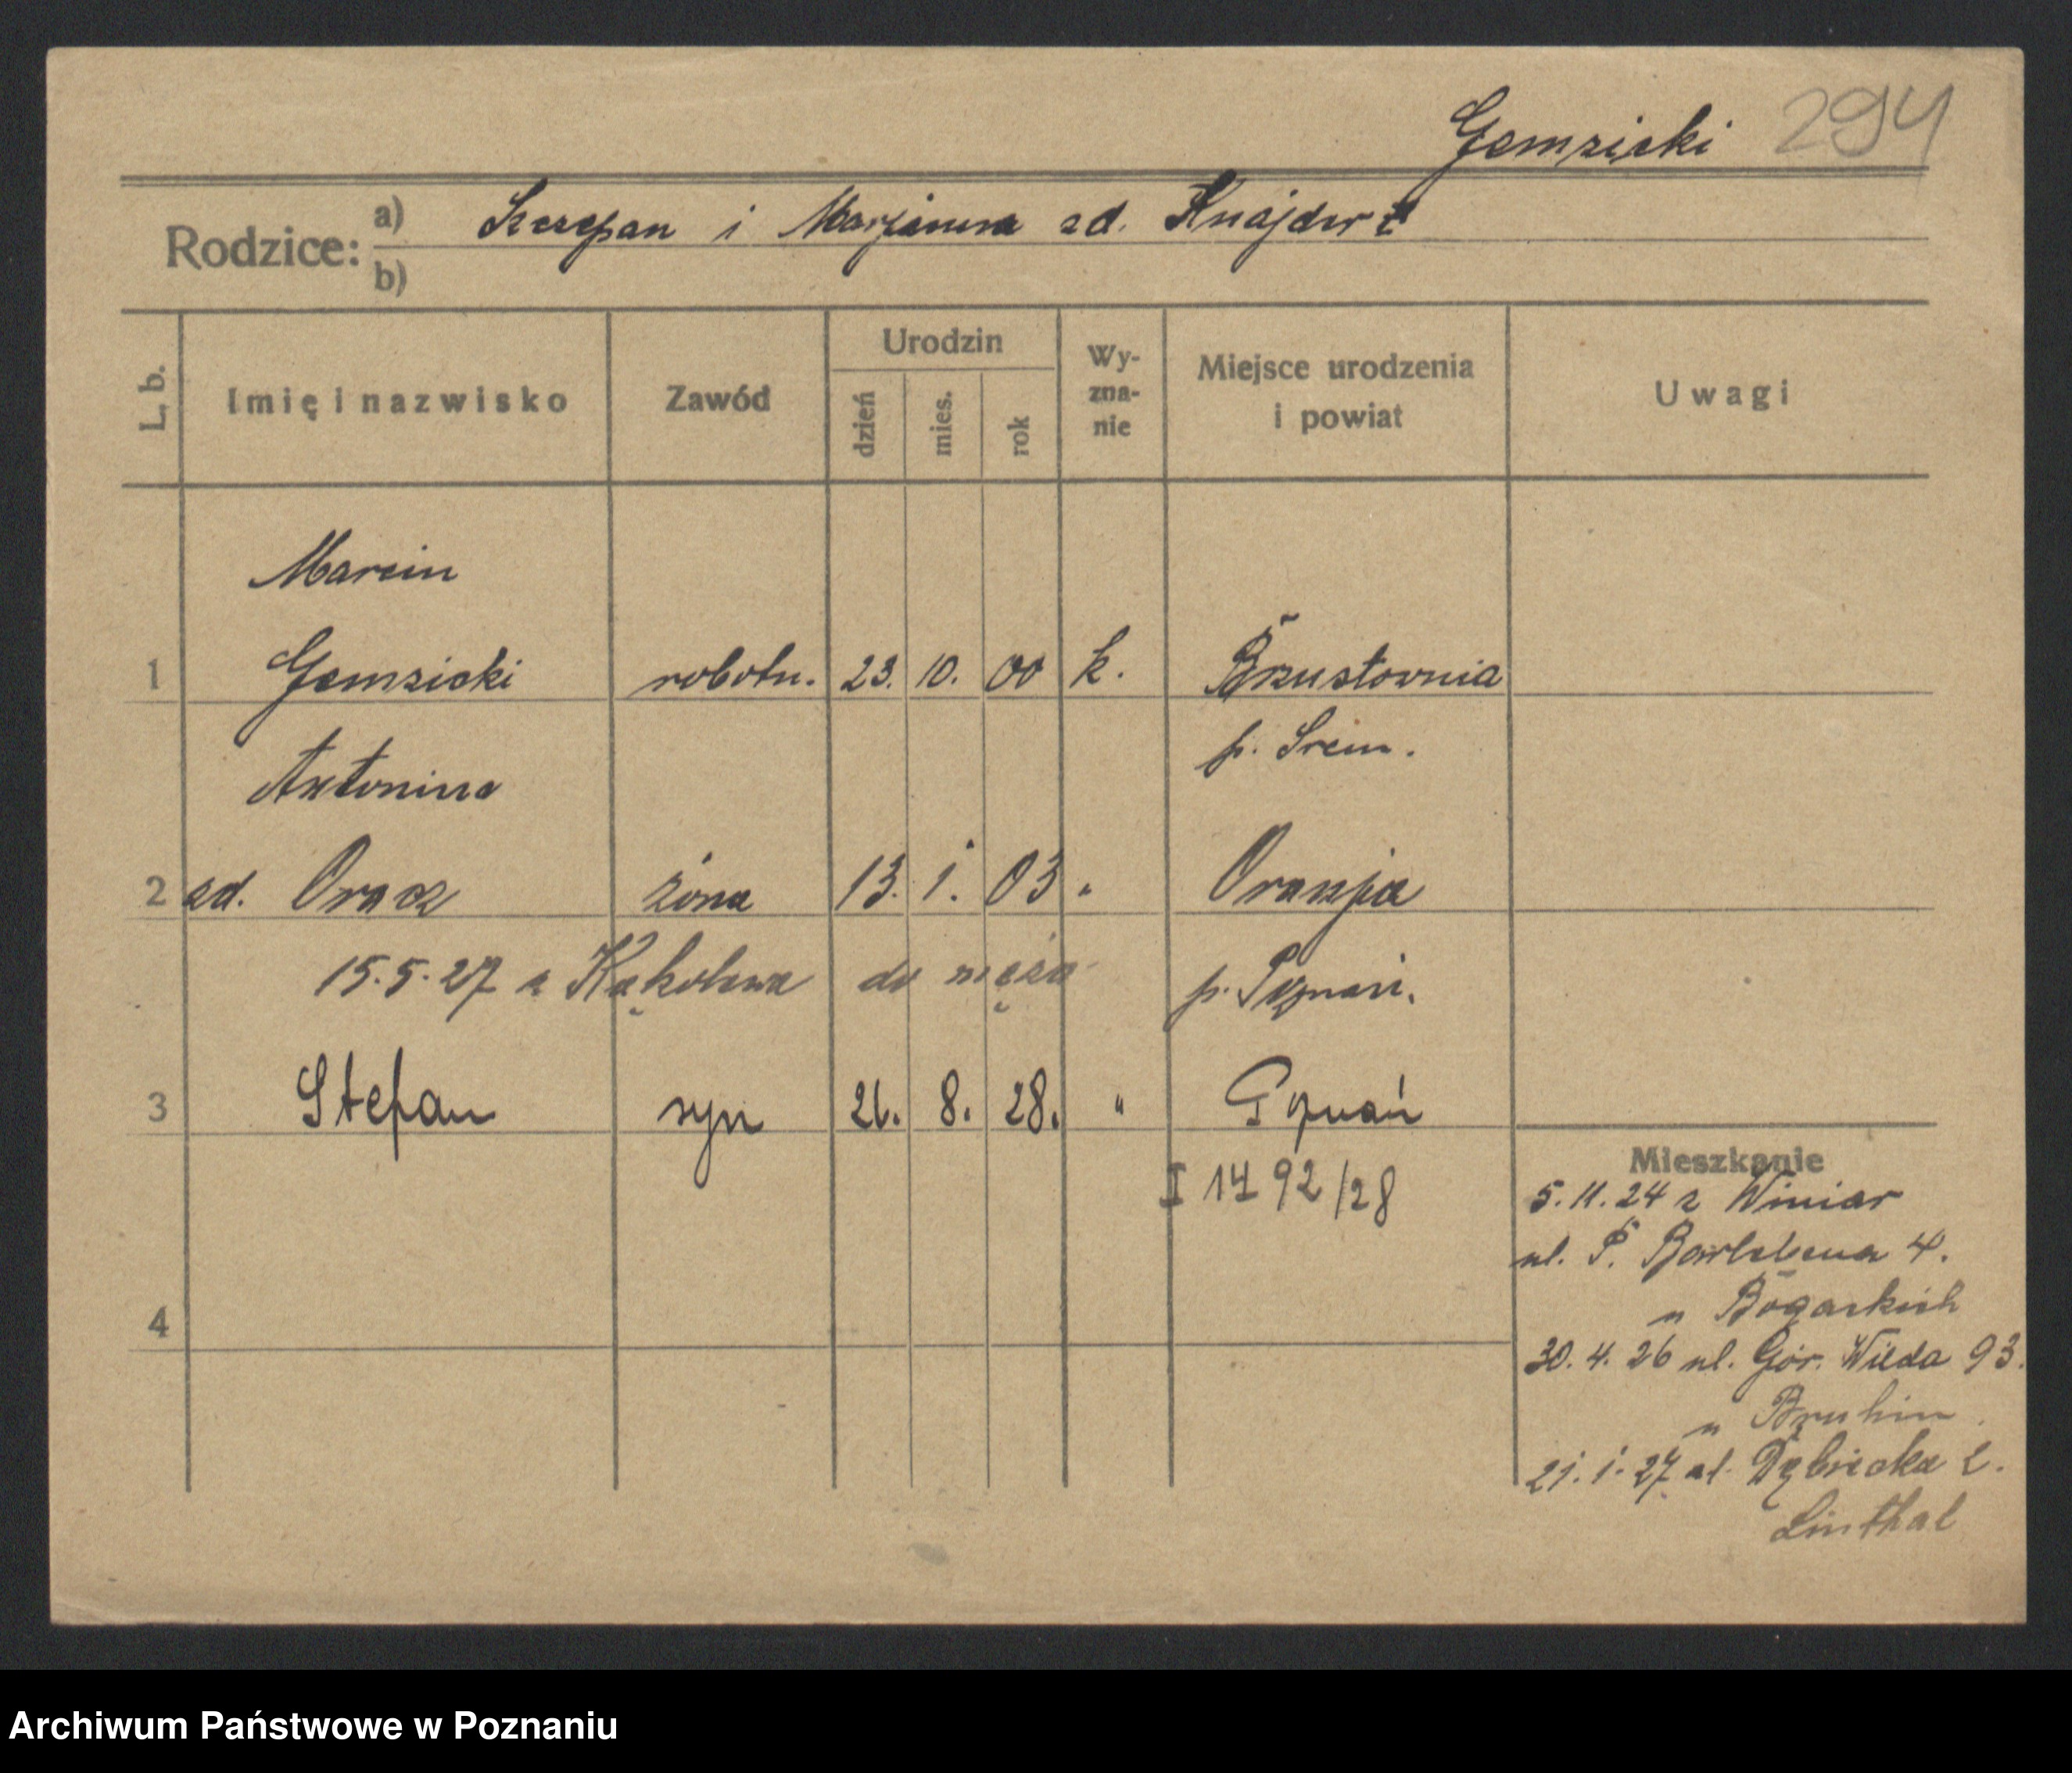 Gemzicki 294
Rodzice: a) Szczepan i Marjanna zd. Knajdert
b)
L. b. Imię i nazwisko Zawód Urodzin dzień mies. rok Wy-zna-nie Miejsce urodzenia i powiat Uwagi
Marcin
1 Gemzicki robotn. 23. 10. 00 k. Brzustownia
p. Srem.
Antonina
2 zd. Oracz żona 13. 1. 03 "
15.5.27 z Kąkolewa do męża p. Poznań.
3 Stefan syn 26. 8. 28. " Poznań
I 1492/28
4
Mieszkanie
5.11.24 z Winiar
ul. P. 4.
u
30.4.26 ul. Gór. Wilda 93.
u
21.1.27 ul. Dębiecka 2.
Linthal
Archiwum Państwowe w Poznaniu